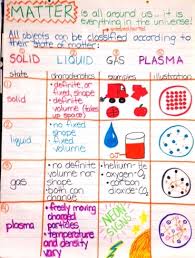 MATTER is all around us... it is
everything in the universe!
All objects can be classified according to
their state of matter:
SOLID LIQUID GAS PLASMA
state characteristics samples illustration
1 solid
• definite or
fixed shape
• definite
volume (takes
up space)
2 liquid
• no fixed
shape
• fixed
volume
3 gas
• no definite
volume nor
shape
both can
change
• helium-He
• oxygen-O2
• carbon
dioxide-CO2
4 plasma
• freely moving
charged
particles
• temperature
and density
vary
NEON
SIGN